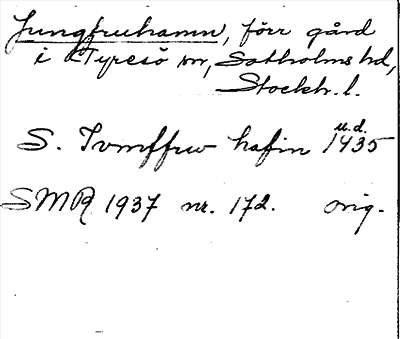 Jungfruhamn, förr gård
i Tyresö sn, Sotholms hd,
Stockh. l.
u.d.
S. Jvmffrw hafin 1435
SMR 1937 nr. 172. orig.